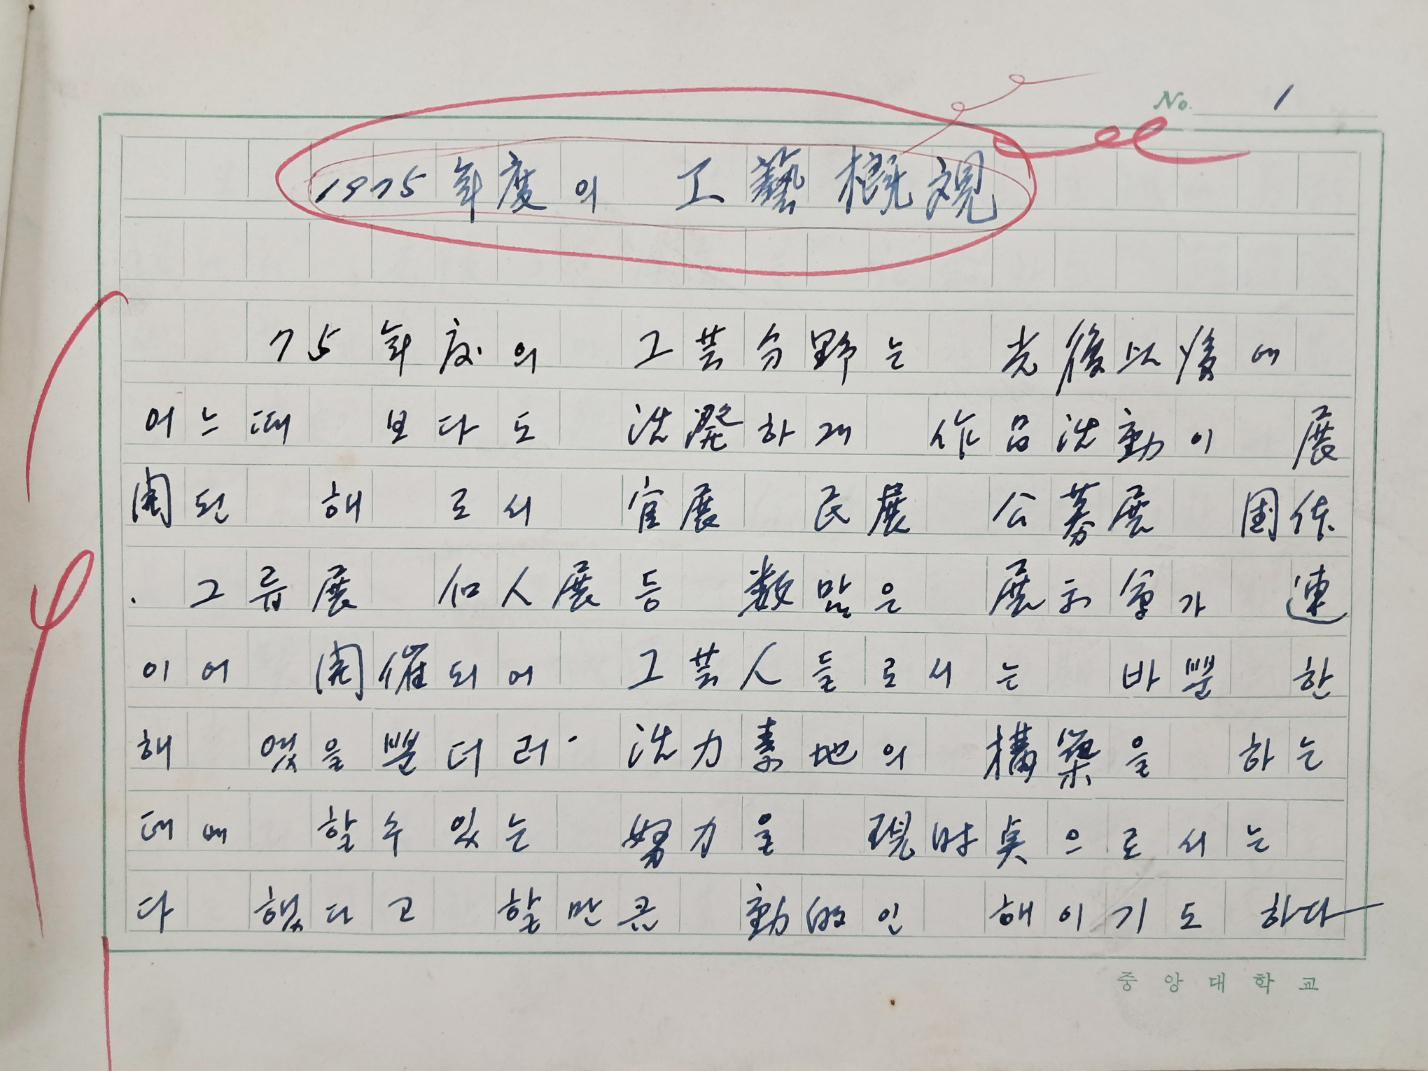 No. 1
1975年度의 工藝概觀
75年度의 工芸分野는 光復以後에
어느때 보다도 活潑하게 作品活動이 展
開된 해로서 官展 民展 公募展 団体
. 그룹展 個人展等 数많은 展示会가 連
이어 開催되어 工芸人들로서는 바쁜 한
해 였을뿐더러 活力素地의 構築을 하는
데에 할수있는 努力을 現時点으로서는
다 했다고 할만큼 動的인 해이기도 하다
중앙대학교